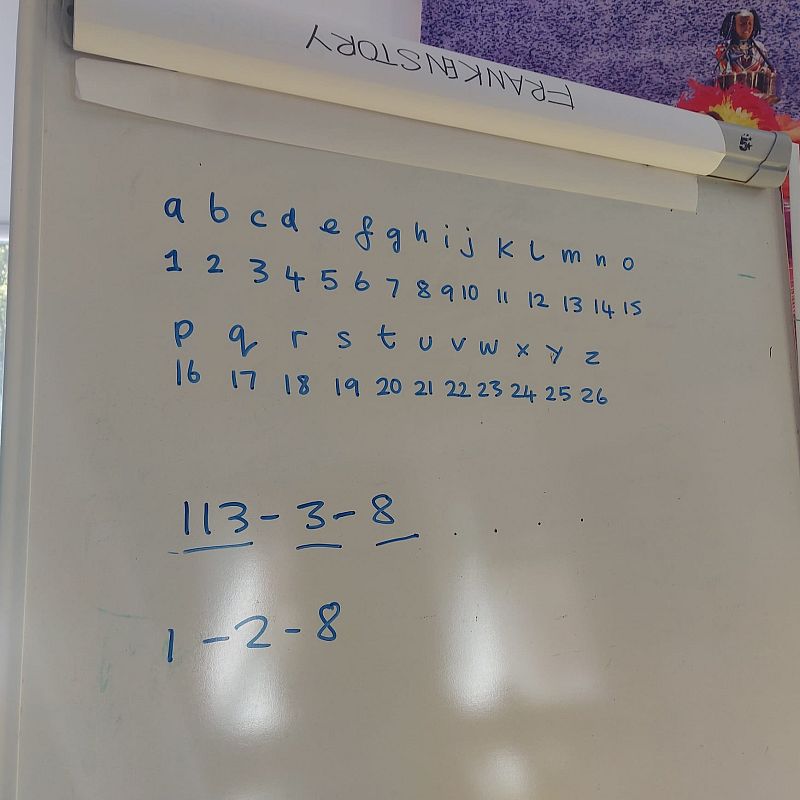 FRANKENSTORY
a b c d e f g h i j k l m n o
1 2 3 4 5 6 7 8 9 10 11 12 13 14 15
p q r s t u v w x y z
16 17 18 19 20 21 22 23 24 25 26
113 - 3 - 8 . . . .
1 - 2 - 8